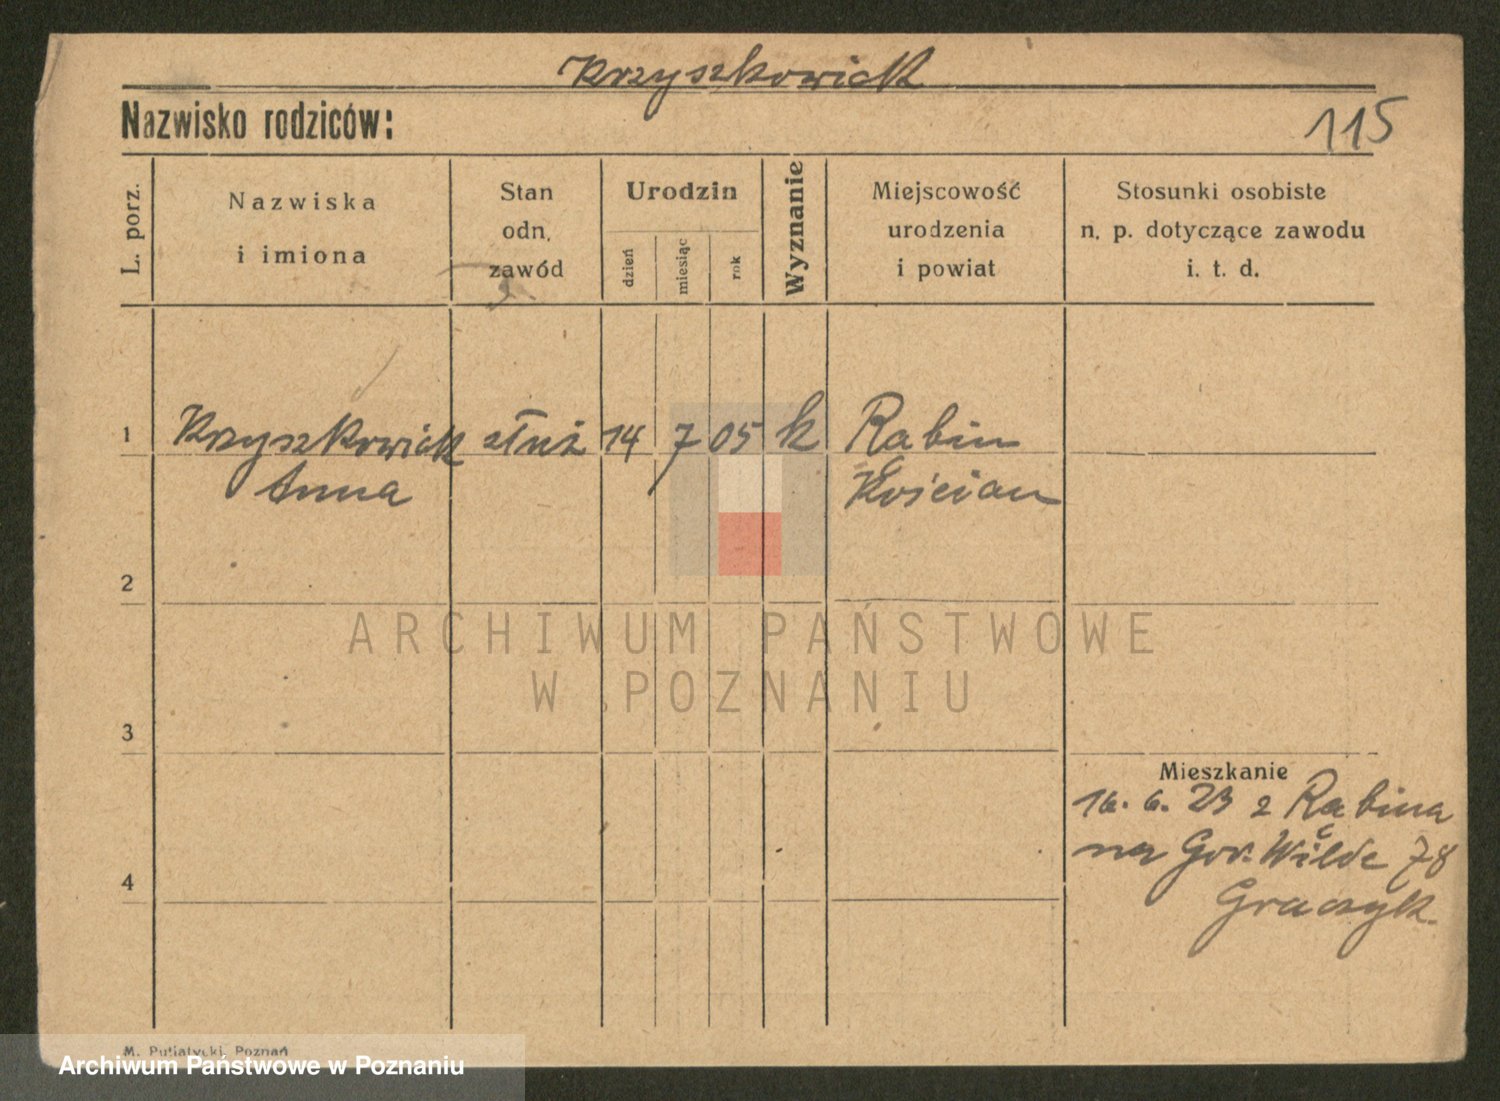 Krzyszkowiak
Nazwisko rodziców:
115
L. porz.
Nazwiska
i imiona
Stan
odn.
zawód
Urodzin
dzień
miesiąc
rok
Wyznanie
Miejscowość
urodzenia
i powiat
Stosunki osobiste
n. p. dotyczące zawodu
i. t. d.
1
Krzyszkowiak służ 14 7 05 k Rąbin
Anna Kościan
2
ARCHIWUM PAŃSTWOWE
W POZNANIU
3
Mieszkanie
16. 6. 23 z Rąbina
na Gór. Wilde 78
Graczyk
4
M. Putiatycki, Poznań
Archiwum Państwowe w Poznaniu